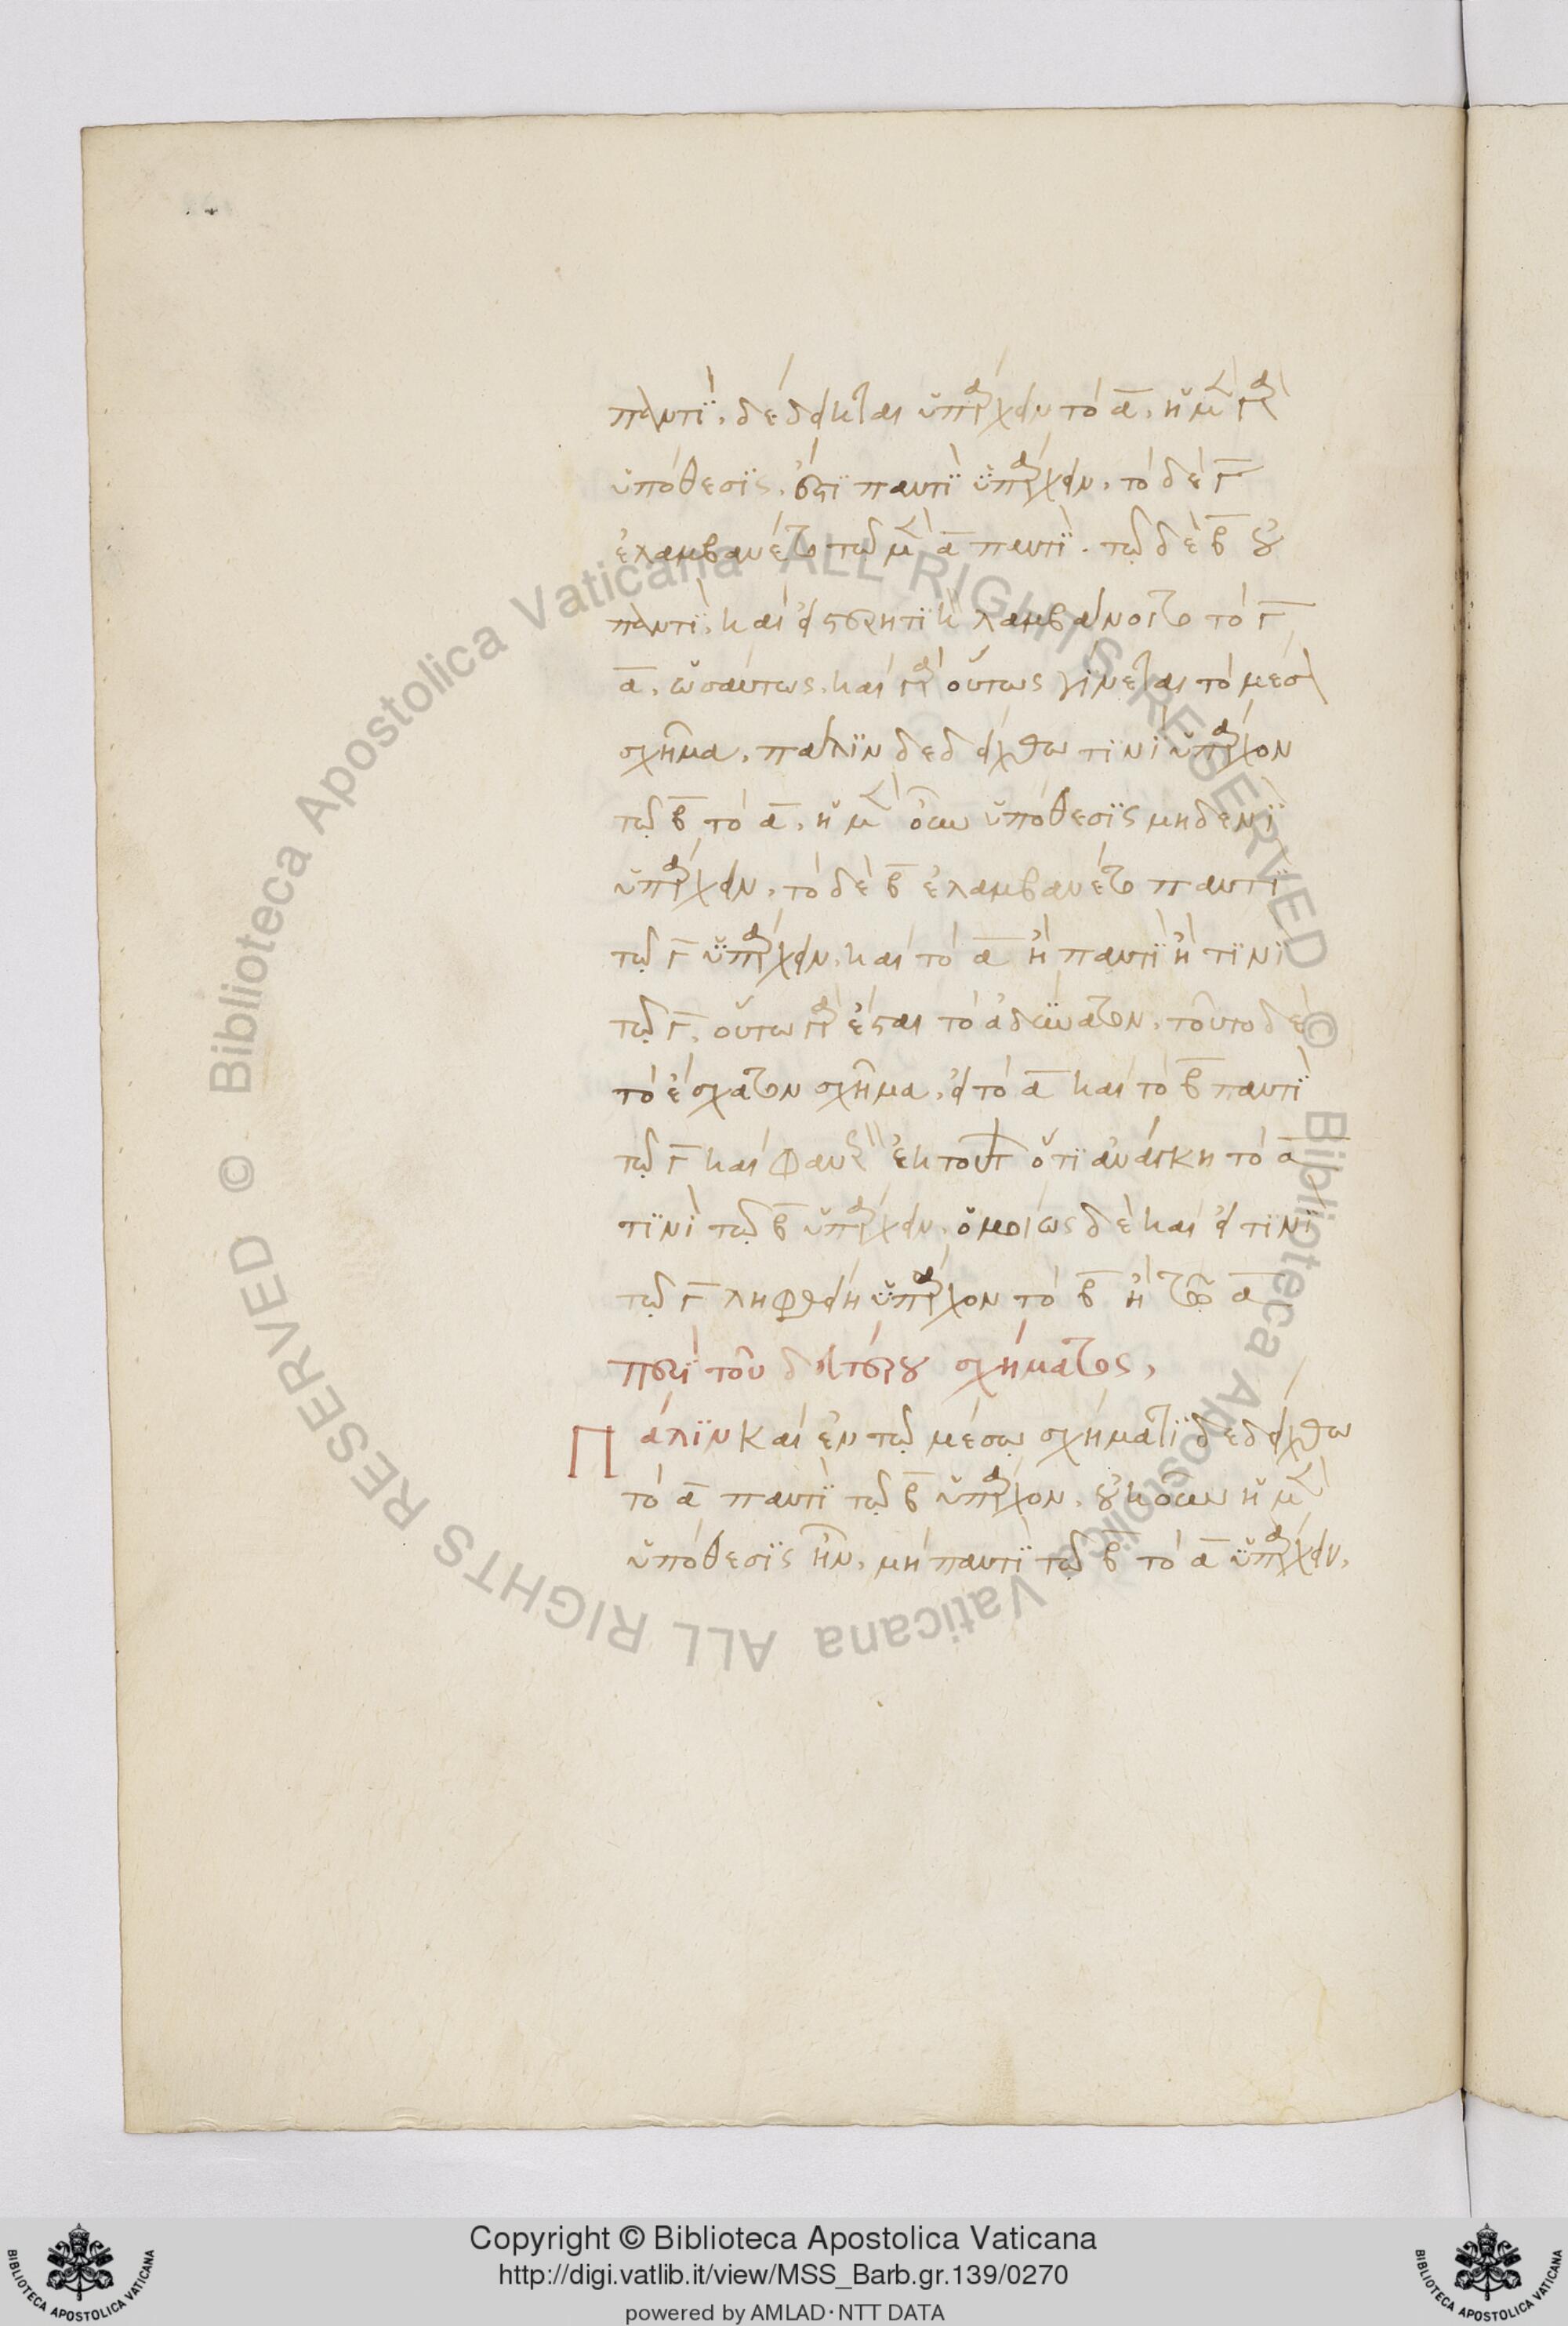 παντὶ, δέδεικται ὑπάρχειν τὸ α. ἡ μὲν γὰρ
ὑπόθεσις, ὅτι παντὶ ὑπάρχειν, τὸ δὲ γ
ἐλαμβανέτο τῷ μὲν α παντὶ. τῷ δὲ β οὐ
παντὶ, καὶ εἰ στερητικὸν λαμβάνοιτο τὸ γ
α, ὡσαύτως. καὶ γὰρ οὕτως γίνεται τὸ μέσον
σχῆμα. πάλιν δεδείχθω τινὶ ὑπάρχον
τῷ β τὸ α. ἡ μὲν οὖν ὑπόθεσις μηδενὶ
ὑπάρχειν, τὸ δὲ β ἐλαμβανέτο παντὶ
τῷ γ ὑπάρχειν, καὶ τὸ α ἢ παντὶ ἢ τινὶ
τῷ γ. οὕτω γὰρ ἔσται τὸ ἀδύνατον. τοῦτο δὲ
τὸ ἔσχατον σχῆμα. εἰ τὸ α καὶ τὸ β παντὶ
τῷ γ καὶ φανερὸν ἐκ τούτων ὅτι ἀνάγκη τὸ α
τινὶ τῷ β ὑπάρχειν. ὁμοίως δὲ καὶ εἰ τινὶ
τῷ γ ληφθείη ὑπάρχον τὸ β ἢ τὸ α
περὶ τοῦ δευτέρου σχήματος,
Πάλιν καὶ ἐν τῷ μέσῳ σχήματι δεδείχθω
τὸ α παντὶ τῷ β ὑπάρχον. οὐκοῦν ἡ μὲν
ὑπόθεσις ἦν, μὴ παντὶ τῷ β τὸ α ὑπάρχειν,
© Biblioteca Apostolica Vaticana ALL RIGHTS RESERVED
© Biblioteca Apostolica Vaticana ALL RIGHTS RESERVED
Copyright © Biblioteca Apostolica Vaticana
http://digi.vatlib.it/view/MSS_Barb.gr.139/0270
powered by AMLAD · NTT DATA
BIBLIOTECA APOSTOLICA VATICANA
BIBLIOTECA APOSTOLICA VATICANA